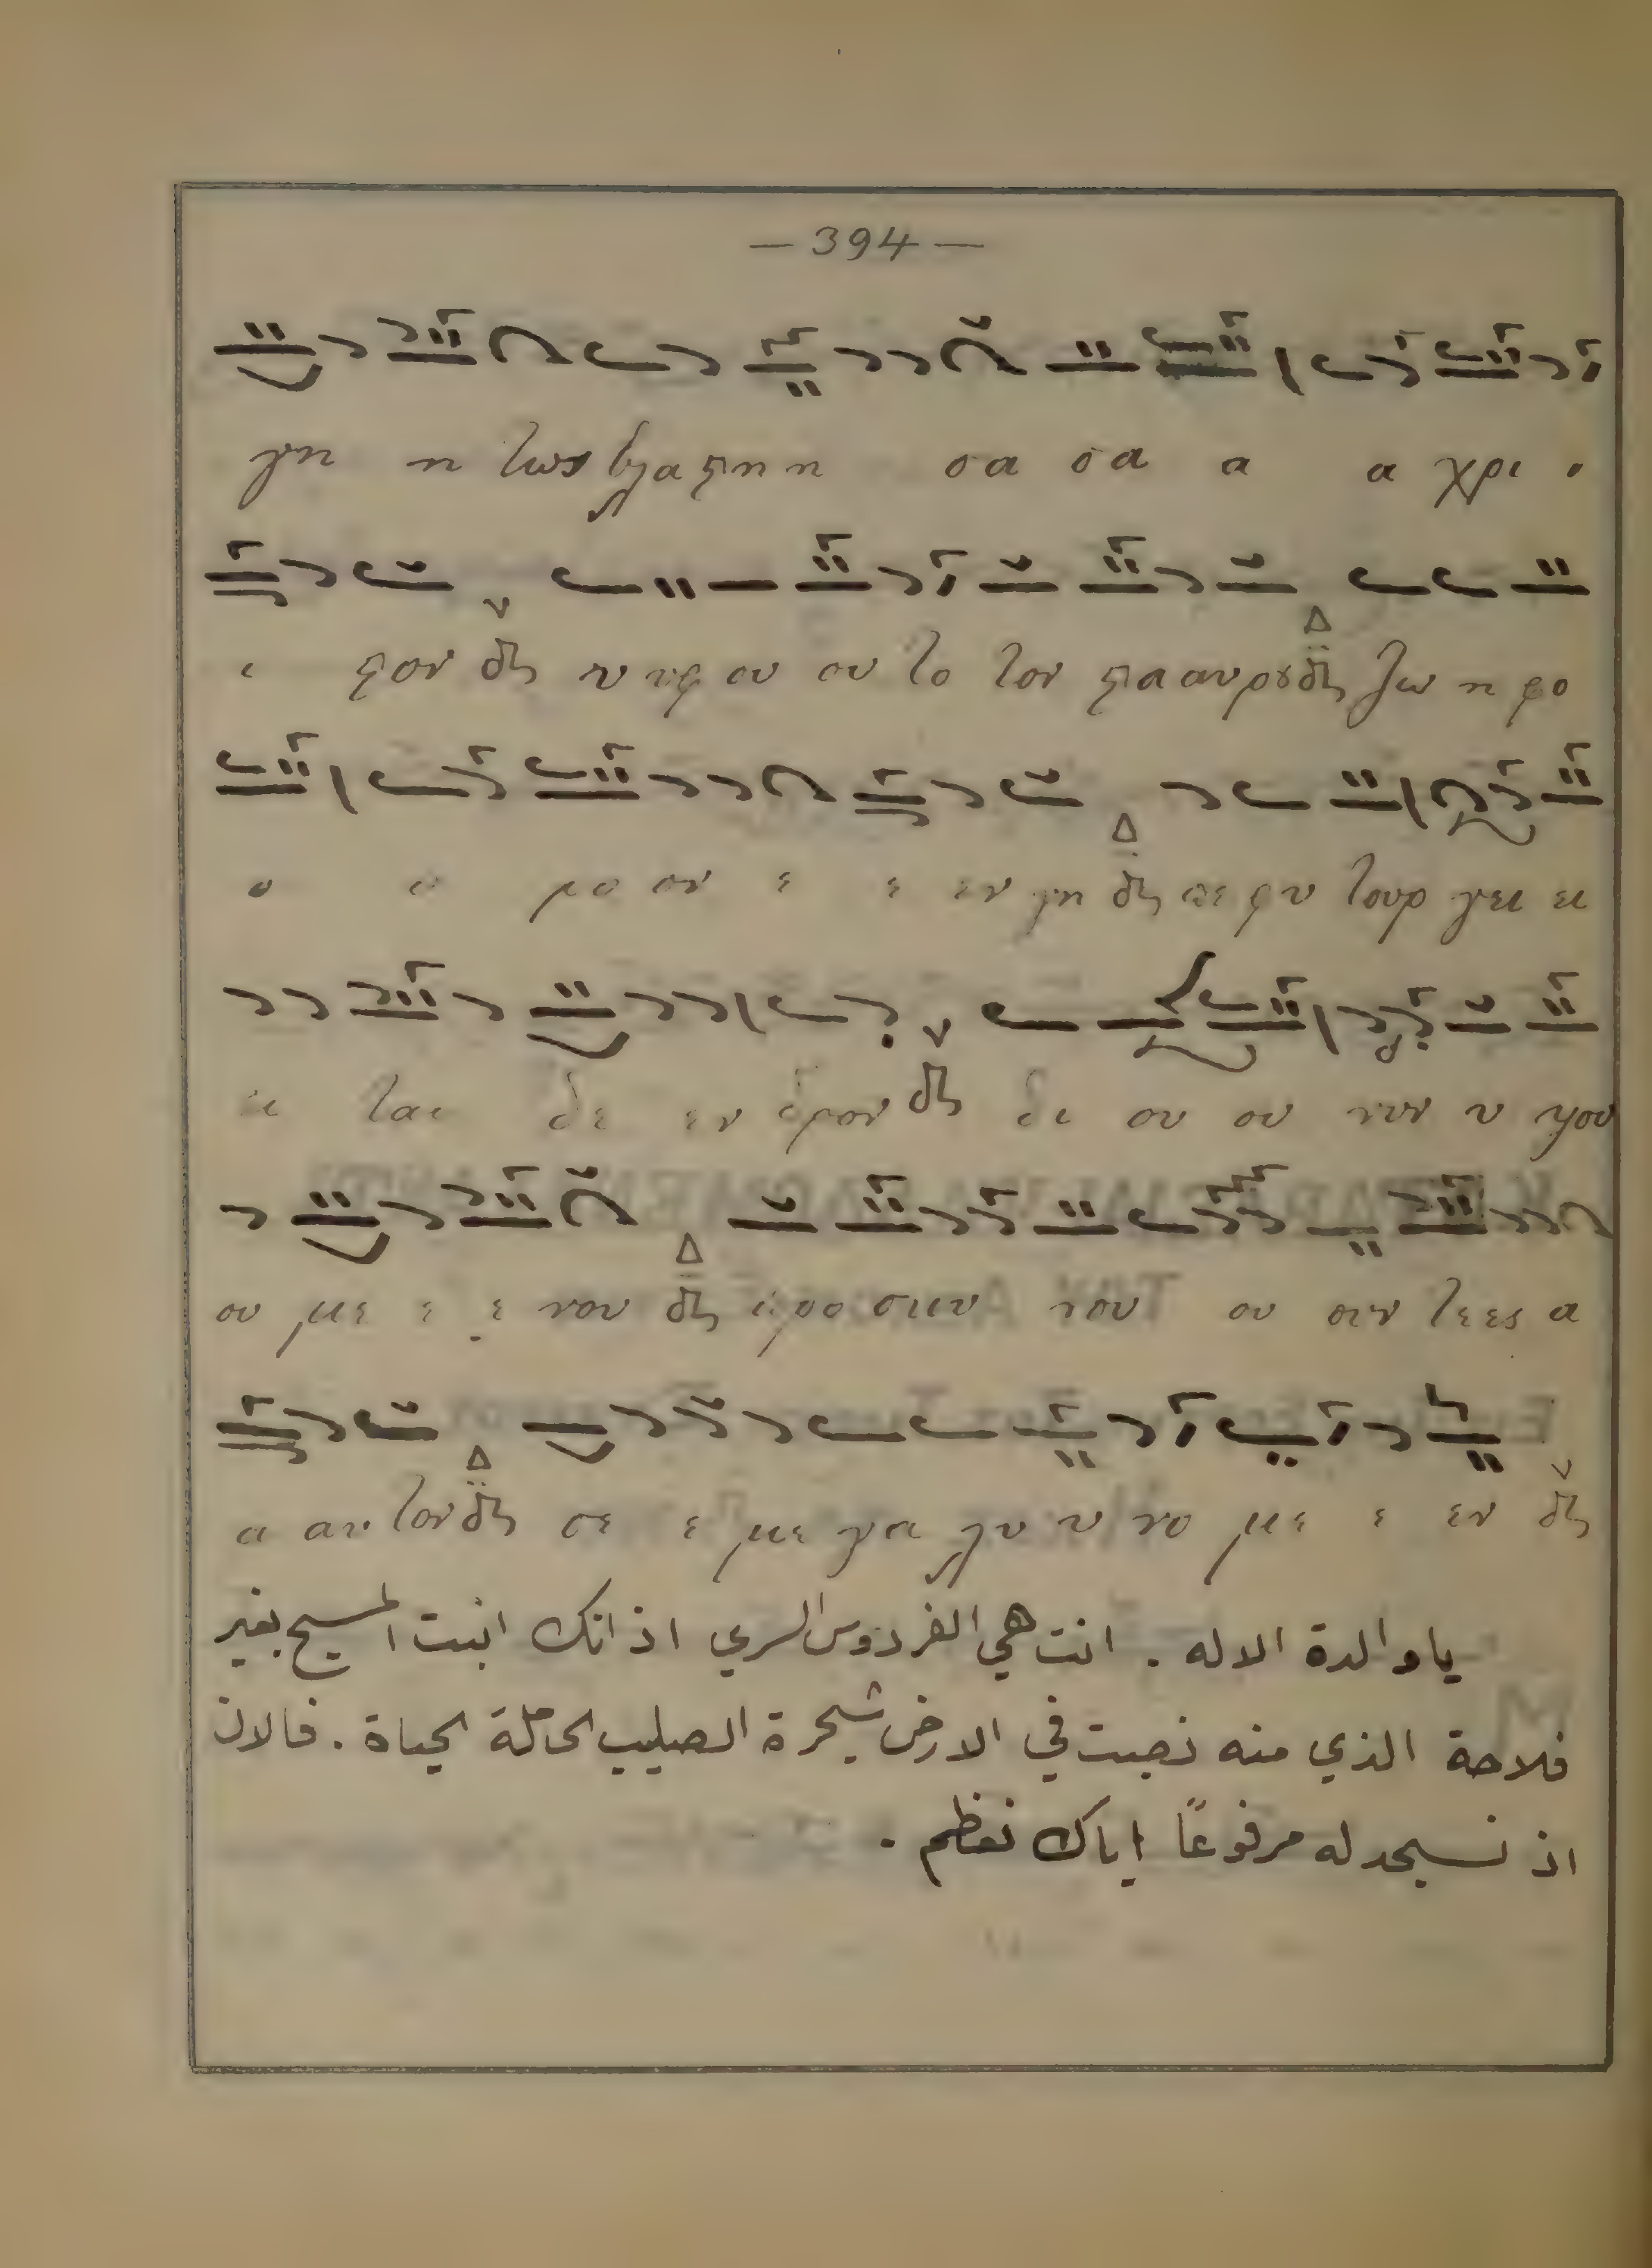 — 394 —
γη η τως βλα στη η σα σα α α χρι ι
ι στον υ υφ ου ου το τον σταυρου ζω η φο
ο ο ρο ον ε ε εν γη πε φυ τουρ γει ει
ει ται δε εν δρον δι ου ου νυν υ ψου
ου με ε ε νου προ σκυ νου ου ουν τεες α
α αυ τον σε ε με γα λυ υ νο με ε εν
يا والدة الاله . انت هي الفردوس السري اذ انك انبت المسيح بغير
فلاحة الذي منه نصبت في الارض شجرة الصليب الحاملة الحياة . فالان
اذ نسجد له مرفوعاً اياك نعظم .